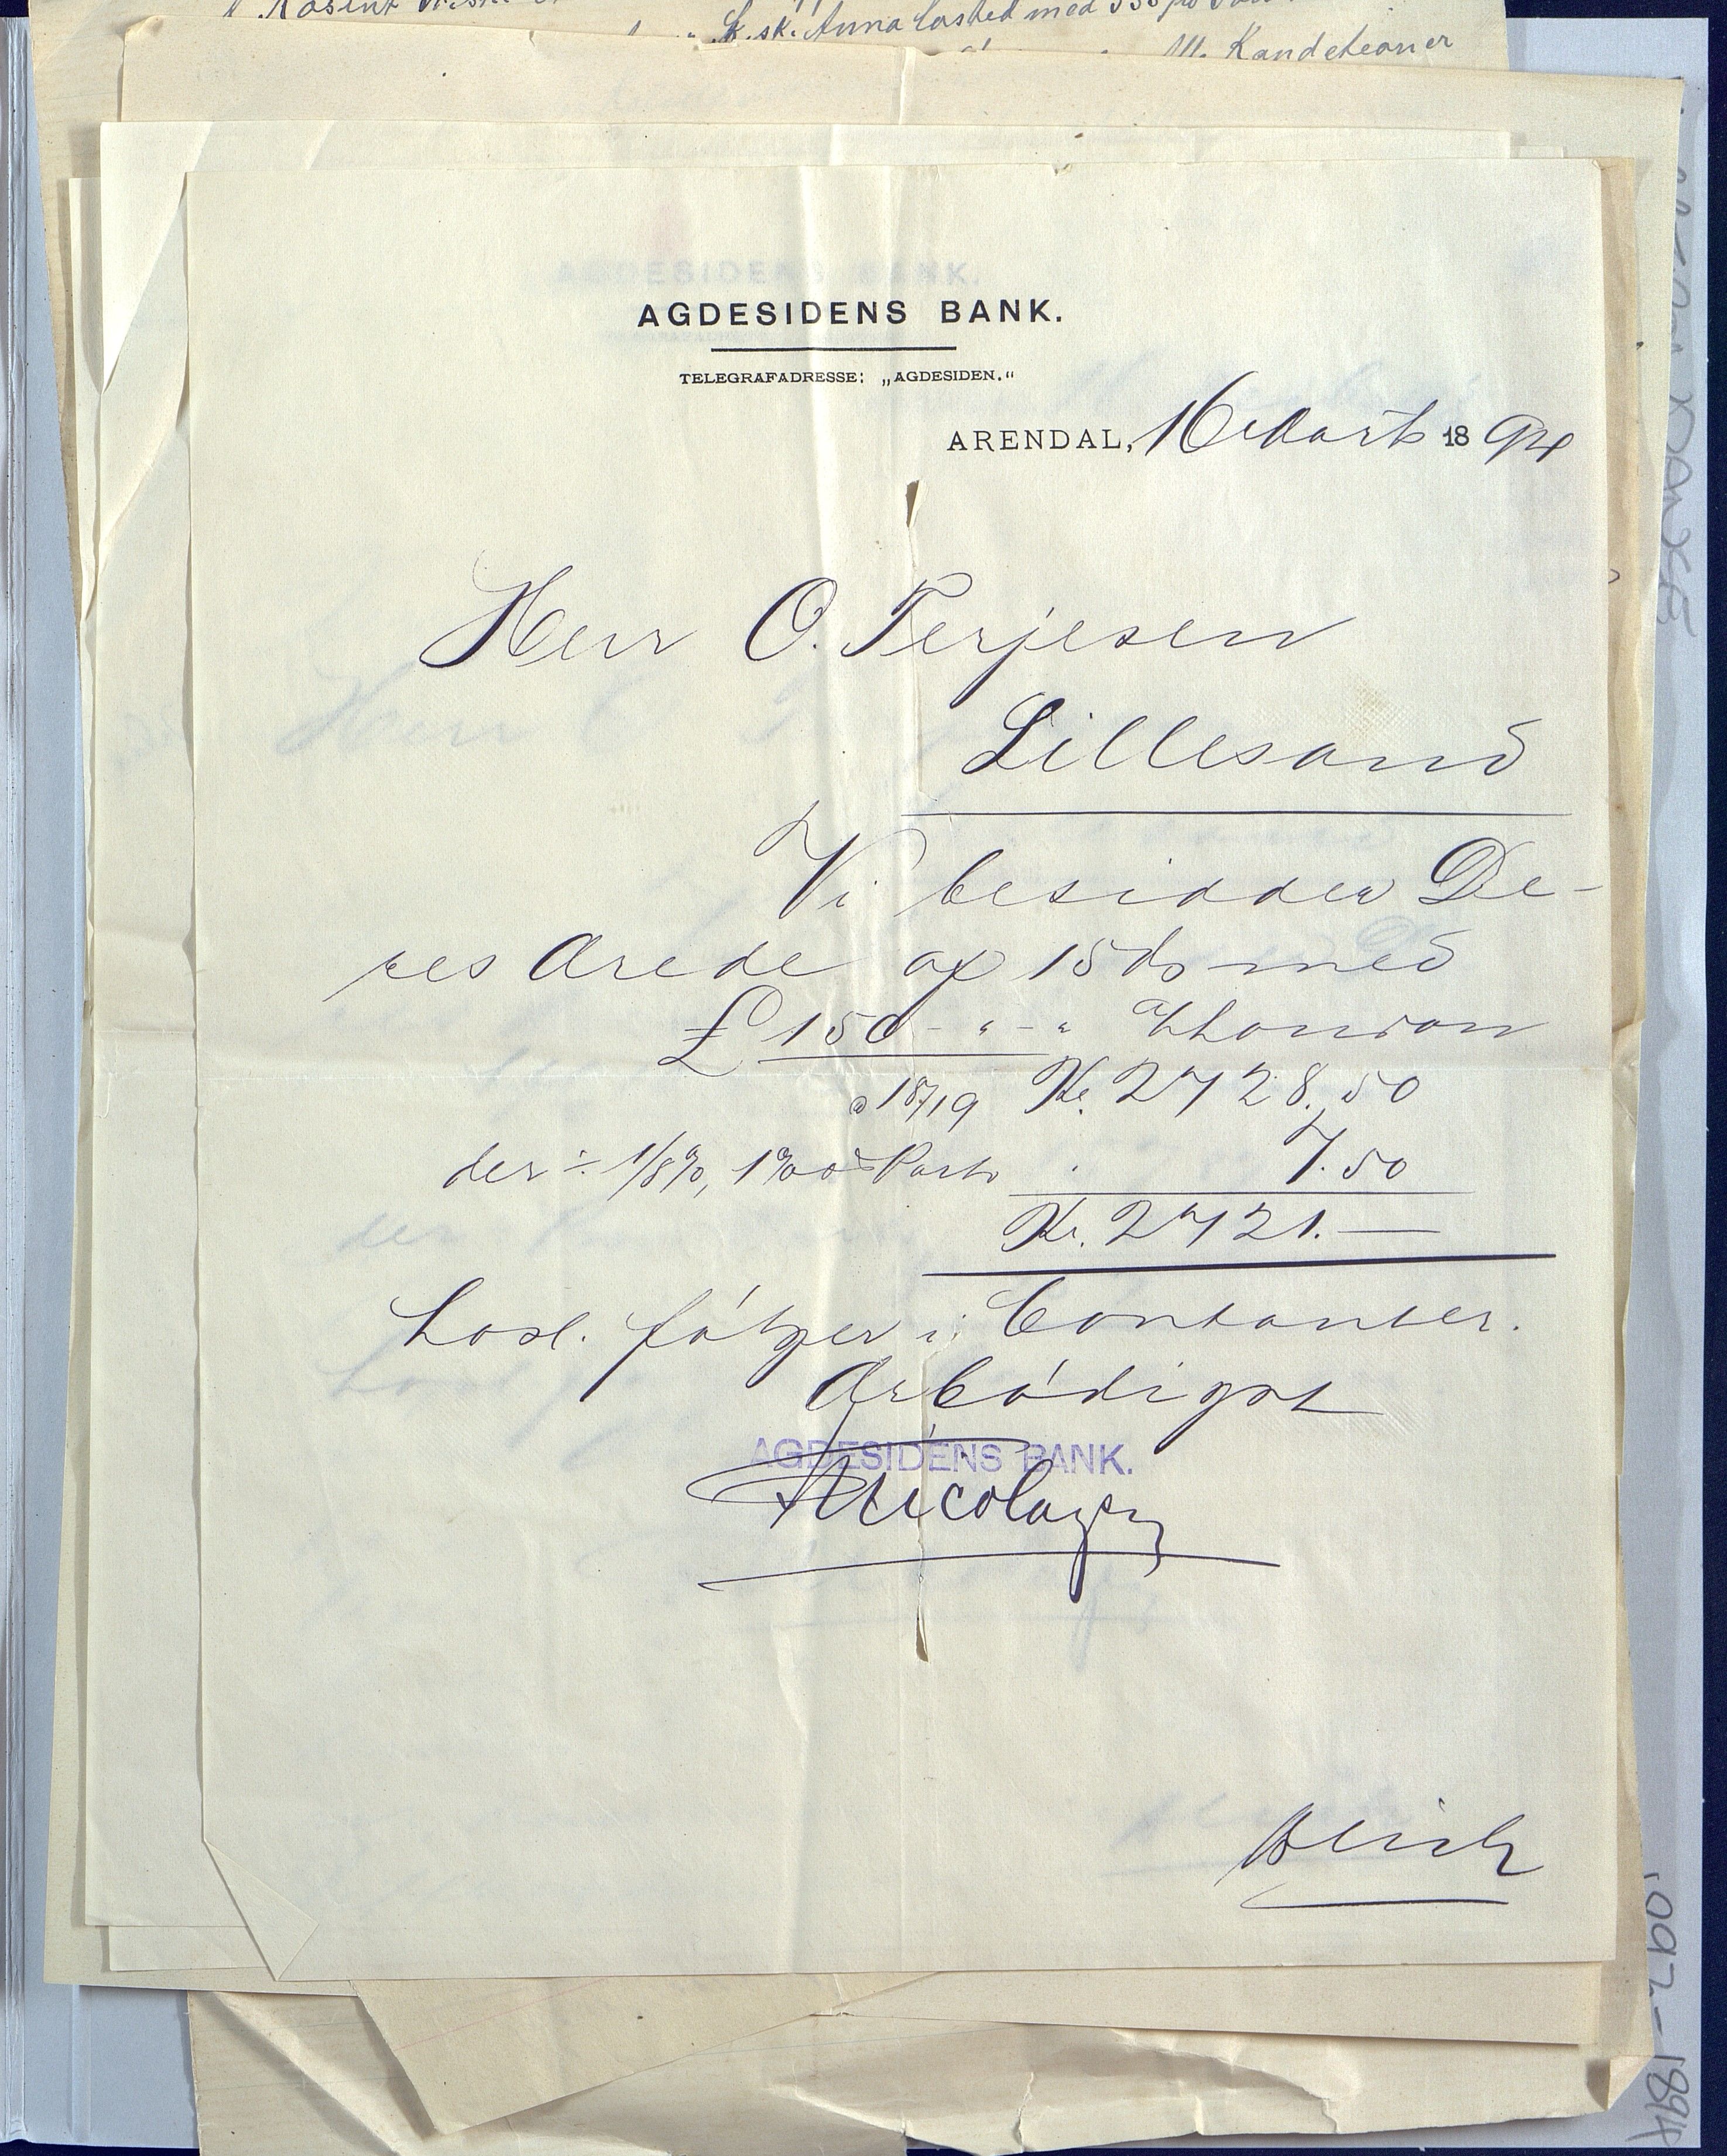 L. sk. Anna lasted med
AGDESIDENS BANK.
TELEGRAFADRESSE: „AGDESIDEN.“
ARENDAL, 16 Marts 1894
Herr O. Terjesen
Lillesand
Vi besidder De-
res Ærede af 15ds med
£ 150 - " - " London
a 18/19 Kr. 2728.50
der ÷ 1/8%, 1%oo Porto . 7.50
Kr. 2721.—
som følger i Contanter.
Ærbødigst
AGDESIDENS BANK.
Nicolaysen
1892-1894